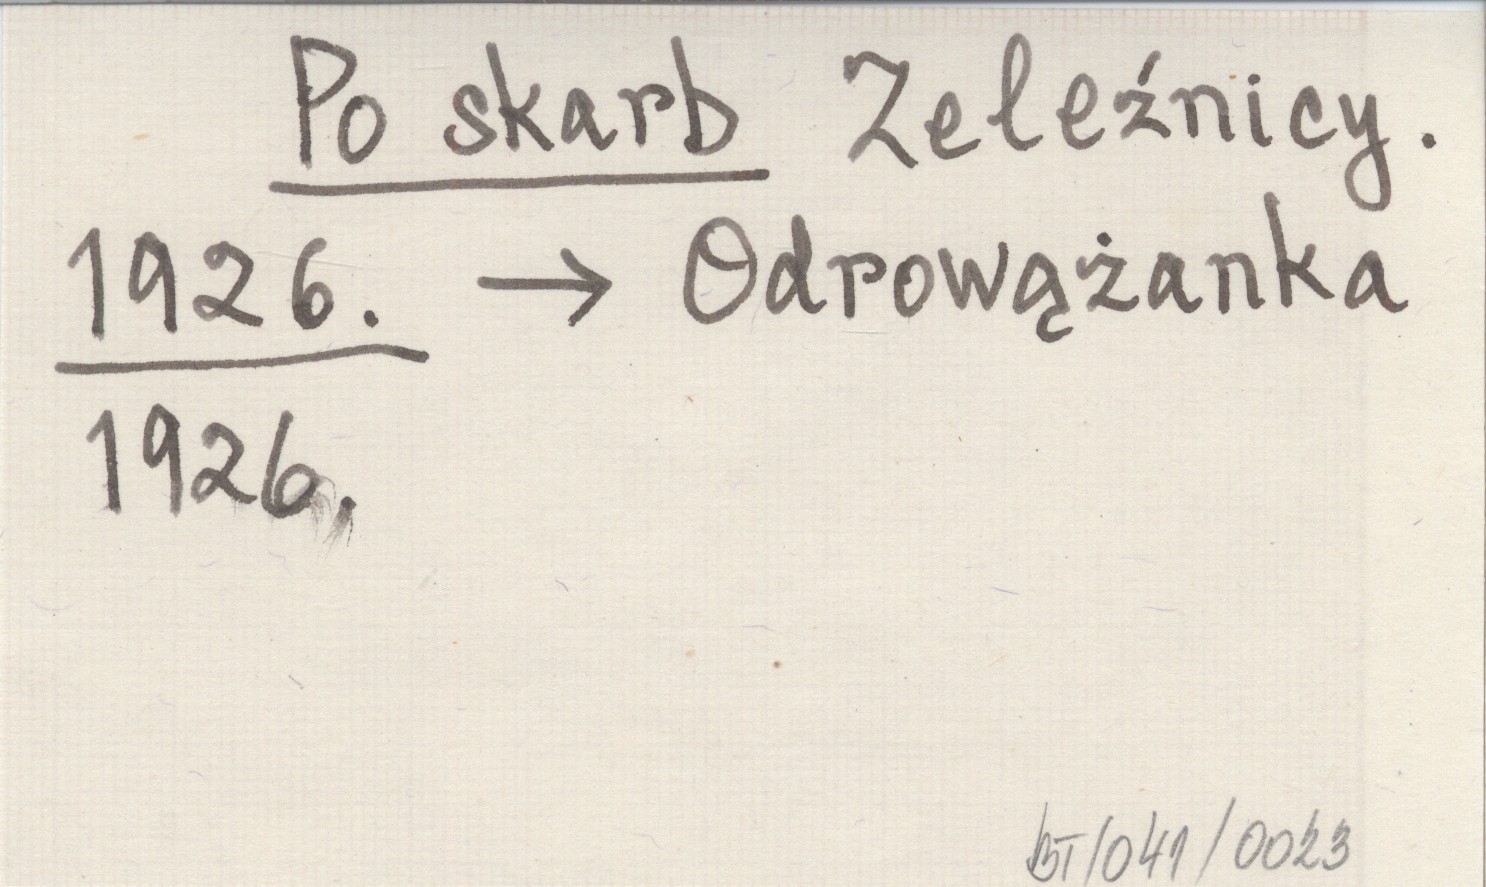 Po skarb Zeleźnicy.
1926. → Odrowążanka
1926.
BT/041/0023